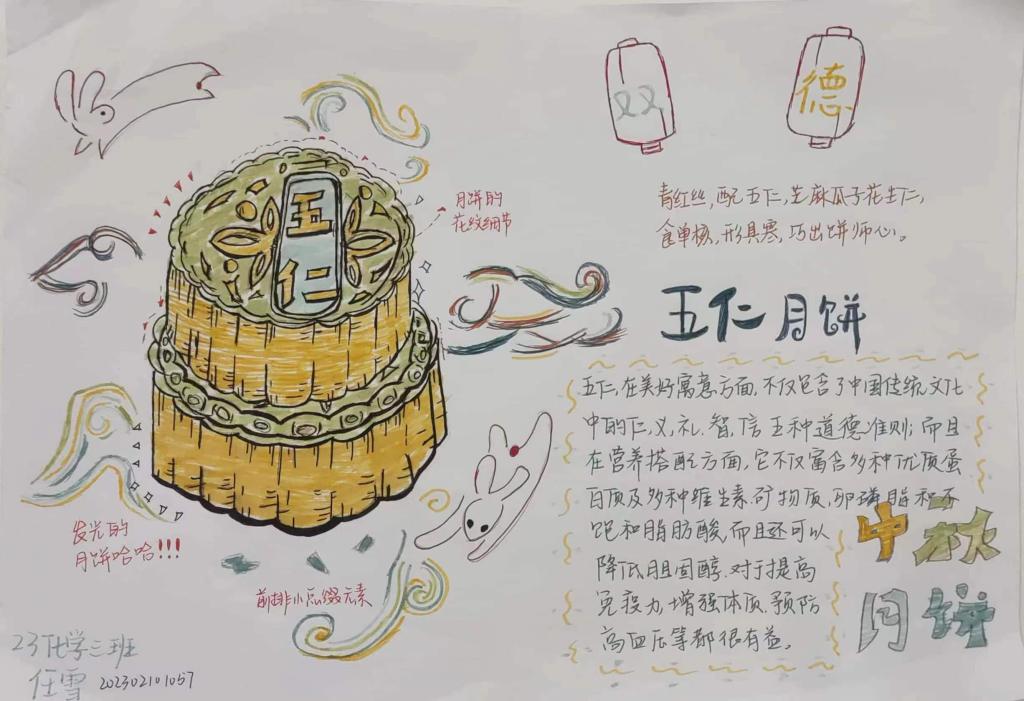 双
德
五
仁
月饼的
花纹细节
青红丝,配五仁,芝麻瓜子花生仁,
食单核,形具寒,巧出饼师心。
五仁月饼
五仁在美好寓意方面,不仅包含了中国传统文化
中的仁、义、礼、智、信五种道德准则;而且
在营养搭配方面,它不仅富含多种优质蛋
白质及多种维生素、矿物质,卵磷脂和不
饱和脂肪酸,而且还可以
降低胆固醇.对于提高
免疫力,增强体质、预防
高血压等都很有益。
中秋
月饼
发光的
月饼哈哈!!!
前排小点缀元素
23化学三班
任雪 202302101057